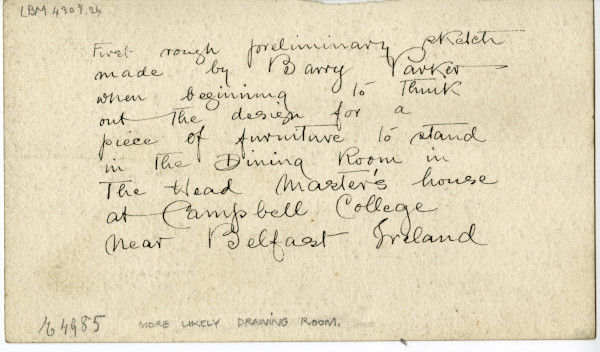 LBM 4309.24
First rough preliminary sketch
made by Barry Parker
when beginning to think
out the design for a
piece of furniture to stand
in the Dining Room in
The Head Master's house
at Campbell College
near Belfast Ireland
MORE LIKELY DRAWING ROOM.